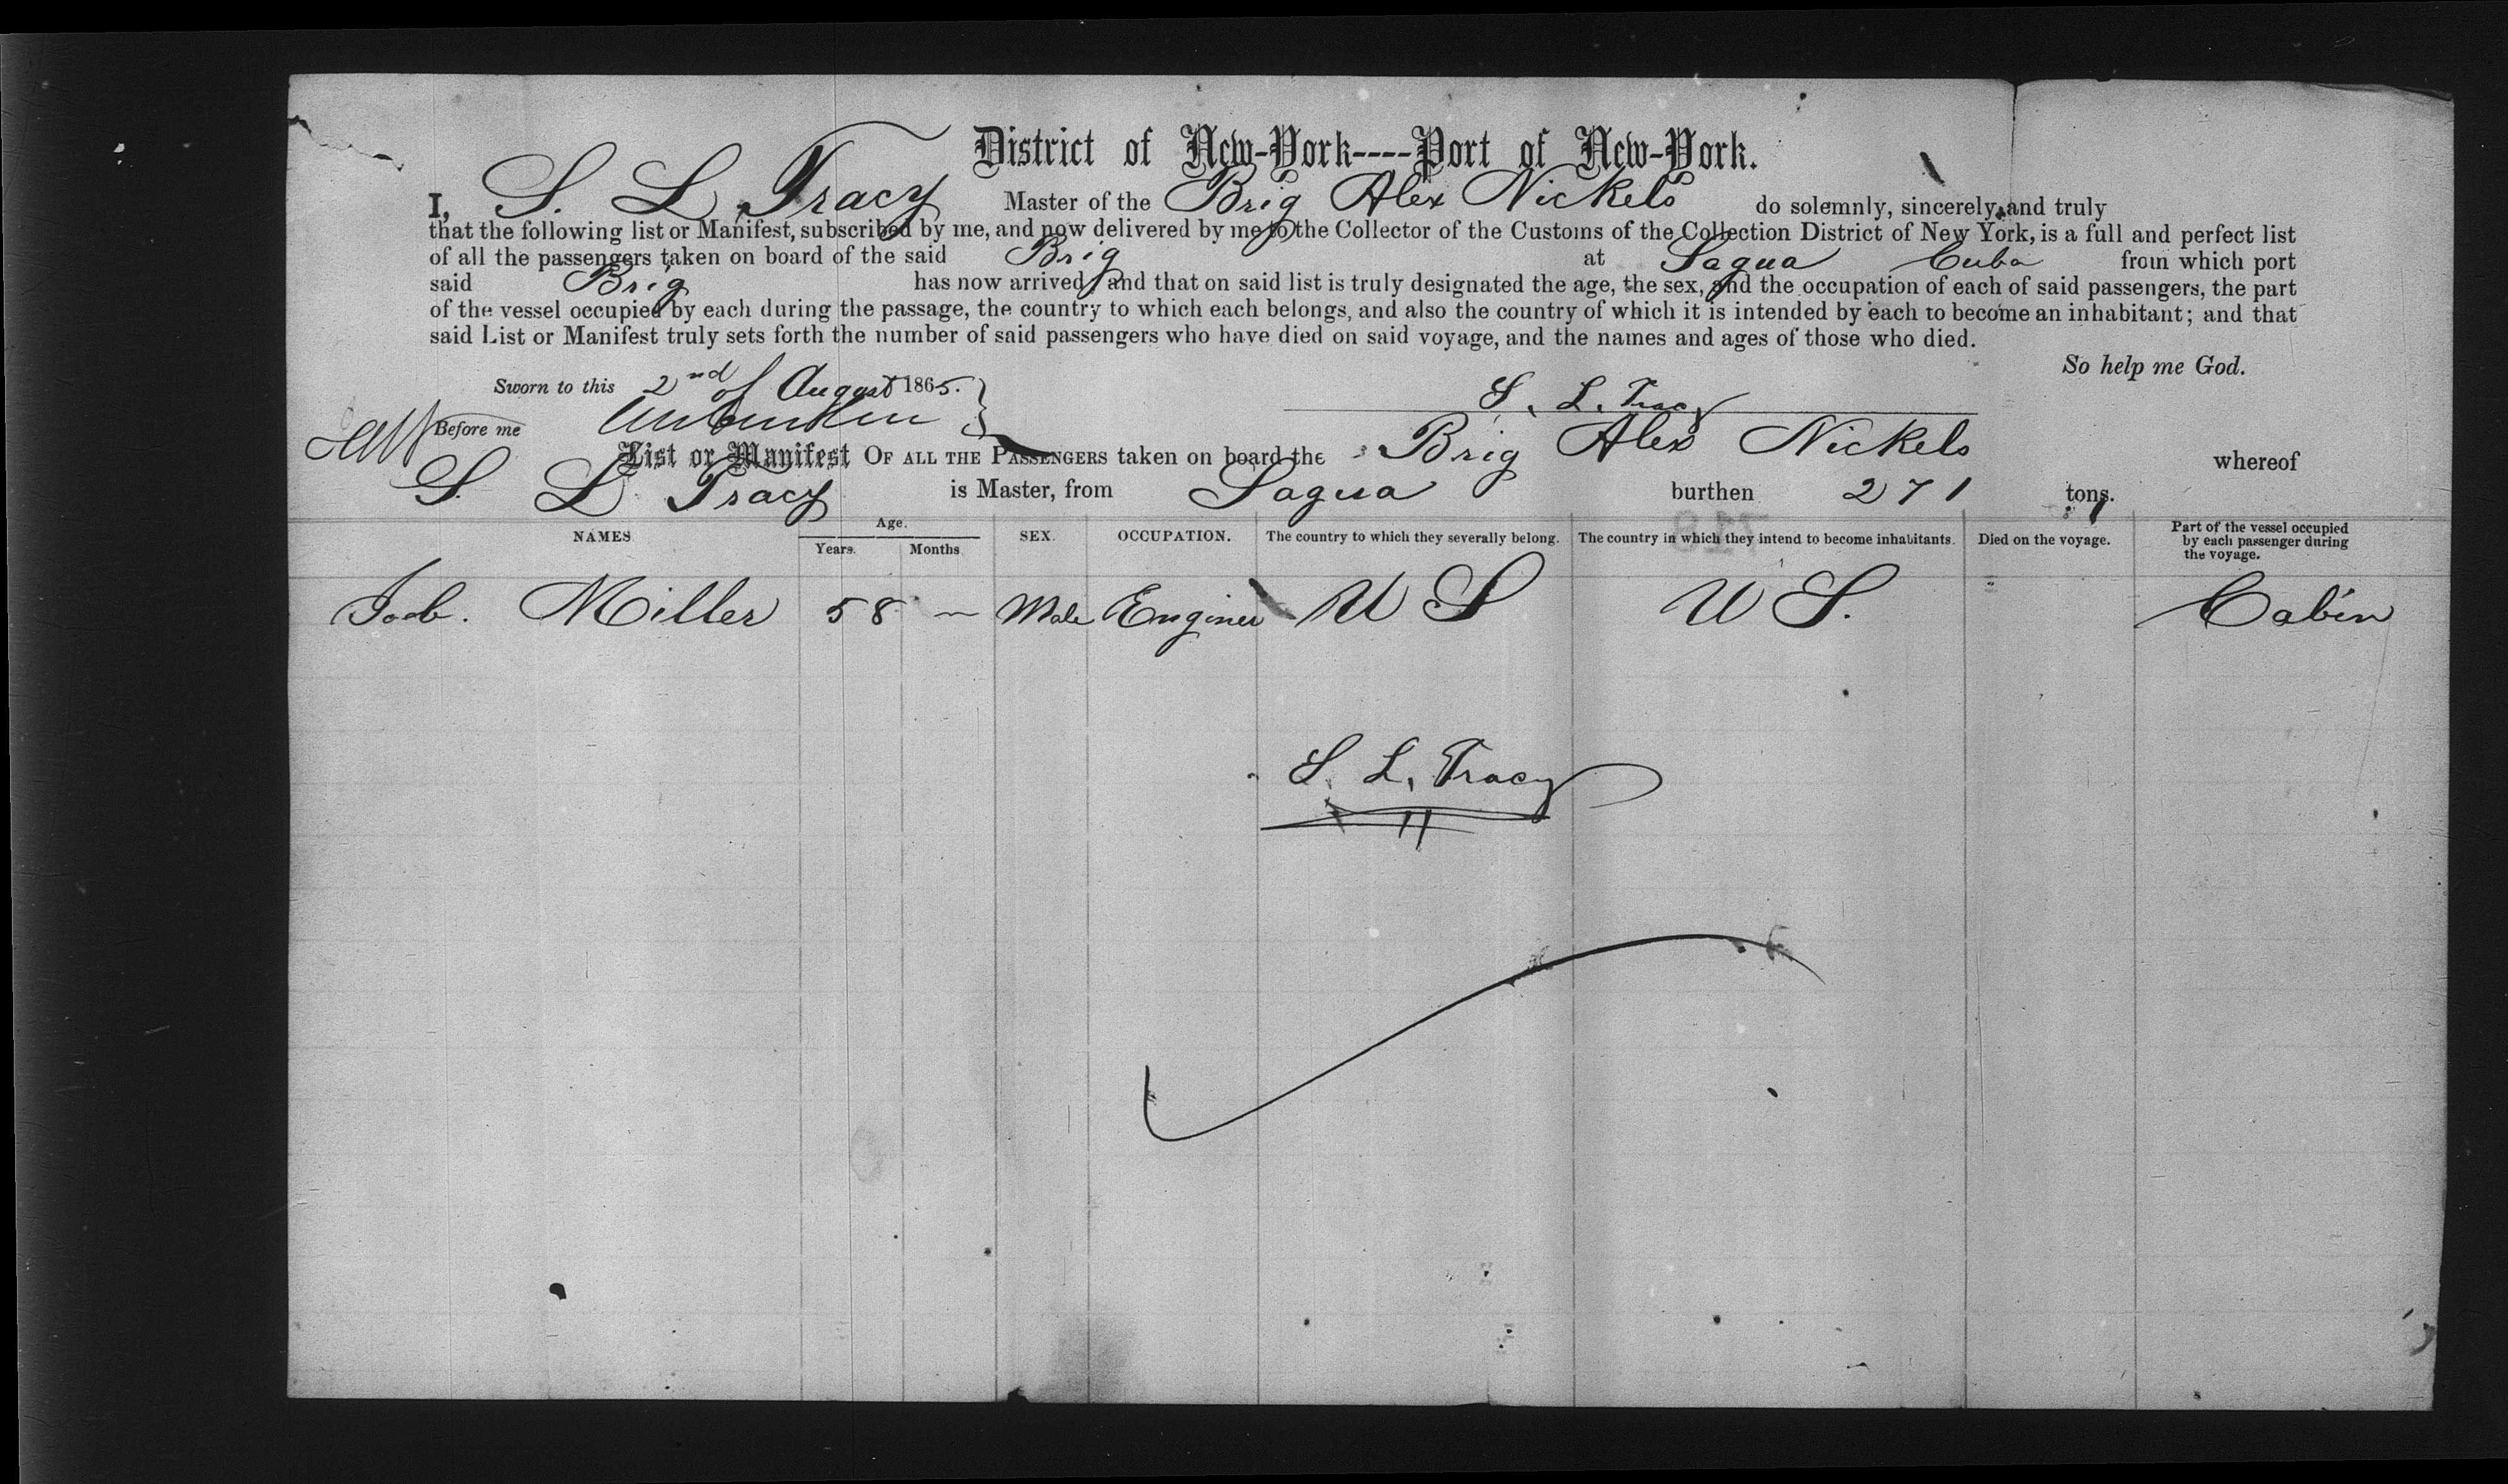 District of New-York----Port of New-York.
I, S. L Tracy Master of the Brig Alex Nickels do solemnly, sincerely, and truly
that the following list or Manifest, subscribed by me, and now delivered by me to the Collector of the Customs of the Collection District of New York, is a full and perfect list
of all the passengers taken on board of the said Brig at Sagua Cuba from which port
said Brig has now arrived; and that on said list is truly designated the age, the sex, and the occupation of each of said passengers, the part
of the vessel occupied by each during the passage, the country to which each belongs, and also the country of which it is intended by each to become an inhabitant; and that
said List or Manifest truly sets forth the number of said passengers who have died on said voyage, and the names and ages of those who died.
So help me God.
Sworn to this 2nd of August 1865.
S. L. Tracy
Before me
List or Manifest OF ALL THE PASSENGERS taken on board the Brig Alex Nickels whereof
S. L Tracy is Master, from Sagua burthen 271 tons.
NAMES Age. Years. Months. SEX. OCCUPATION. The country to which they severally belong. The country in which they intend to become inhabitants. Died on the voyage. Part of the vessel occupied by each passenger during the voyage.
Miller 58 — Male Enginer U S U S. Cabin
S. L. Tracy